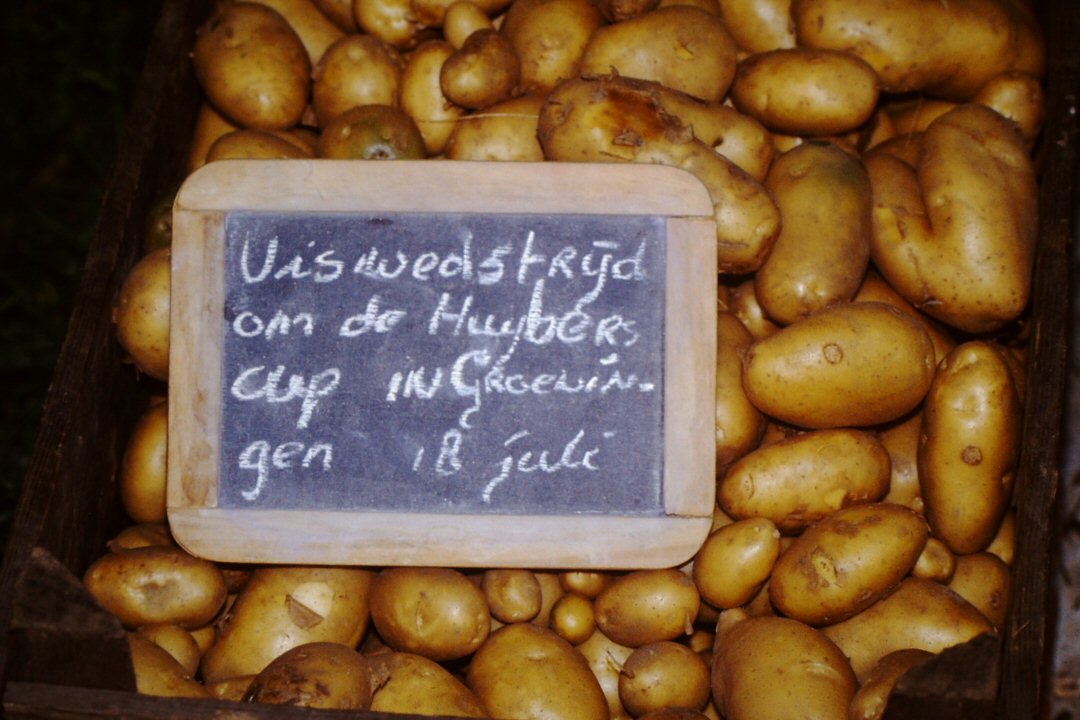 Viswedstrijd
om de Huybers
cup in Groenin-
gen 18 juli